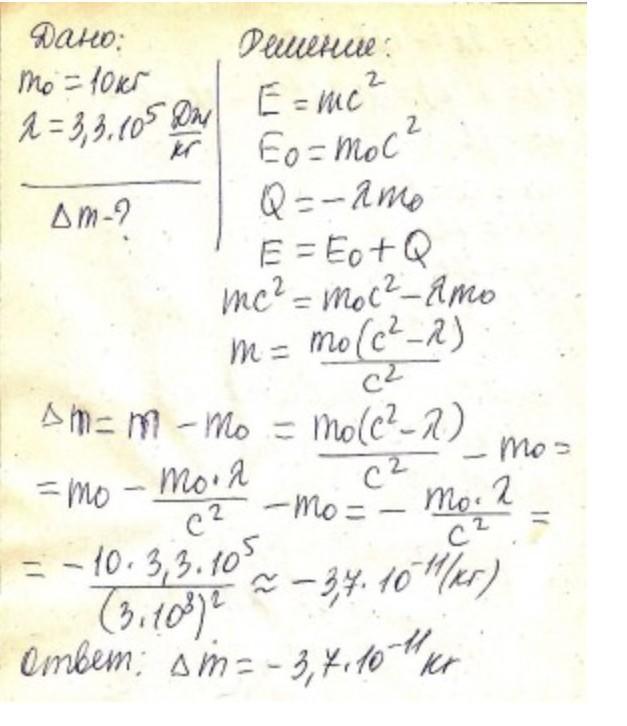 Дано:
m₀ = 10кг
λ = 3,3.10⁵ Дж/кг
Δm - ?
Решение:
E = mc²
E₀ = m₀c²
Q = -λm₀
E = E₀ + Q
mc² = m₀c² - λm₀
m = m₀(c² - λ)/c²
Δm = m - m₀ = m₀(c² - λ)/c² - m₀ =
= m₀ - m₀·λ/c² - m₀ = - m₀·λ/c² =
= -10·3,3·10⁵/(3·10⁸)² ≈ -3,7·10⁻¹¹(кг)
Ответ: Δm = -3,7·10⁻¹¹ кг